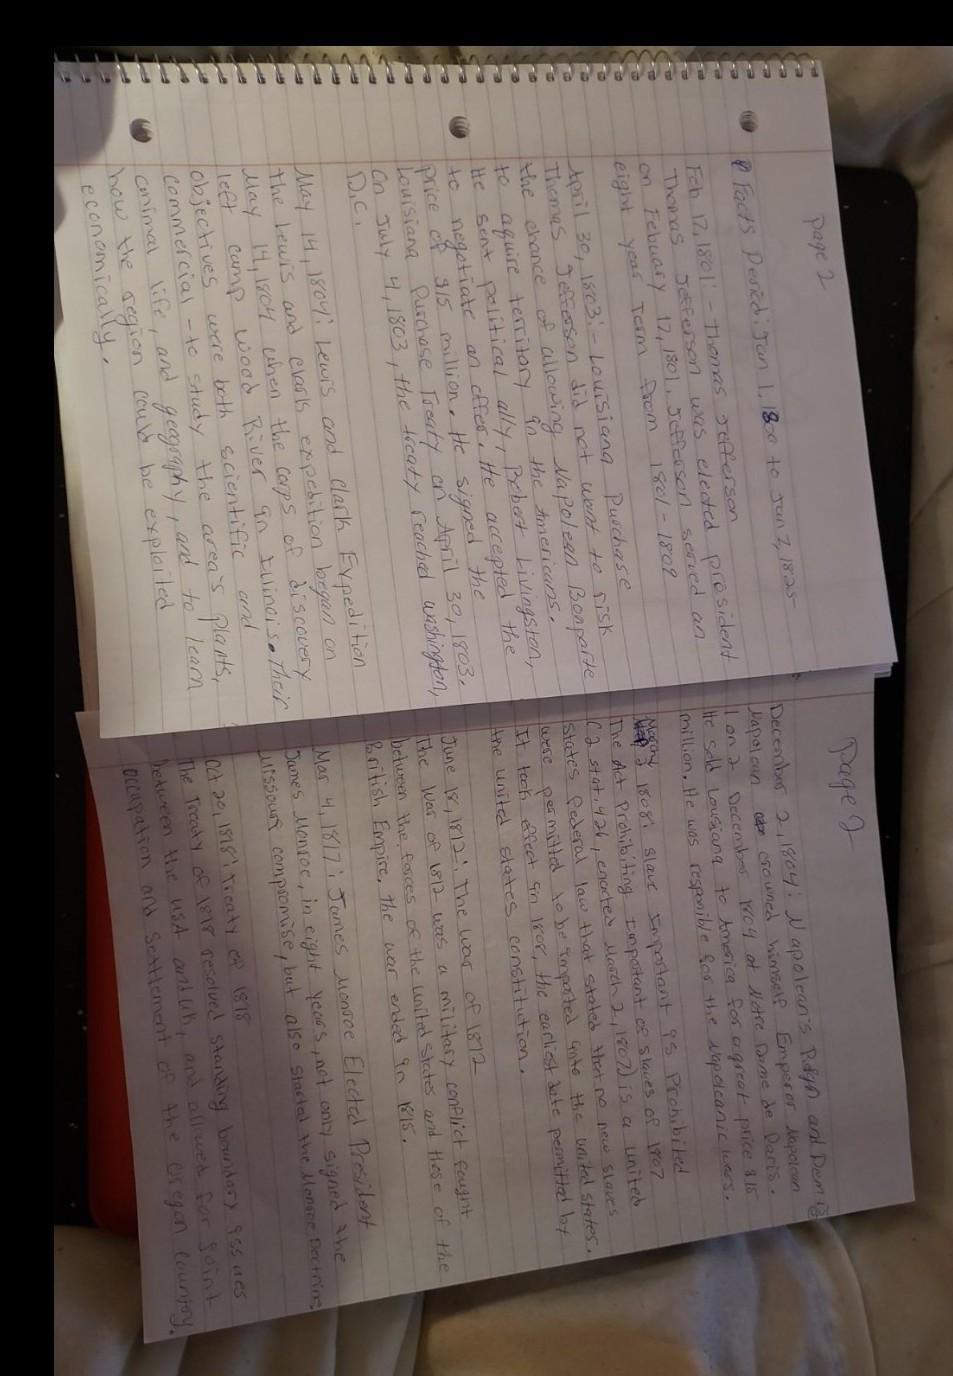 Page 2
Facts Period: Jan 1, 1800 to Jan 2, 1825
Feb 17, 1801: - Thomas Jefferson
Thomas Jefferson was elected president
on Febuary 17, 1801. Jefferson served an
eight year Term from 1801 - 1809
April 30, 1803: - Louisiana Purchase
Thomas Jefferson did not want to risk
the chance of allowing Napolean Bonparte
to aquire territory in the Americans.
He sent political ally, Robert Livingston,
to negotiate an offer. He accepted the
price of $15 million. He signed the
Louisiana Purchase Treaty on April 30, 1803.
On July 4, 1803, the treaty reached Washington,
D.C.
May 14, 1804: Lewis and Clark Expedition
the Lewis and Clark expedition began on
May 14, 1804 when the Corps of discovery
left camp Wood River in Illinois. Their
objectives were both scientific and
commercial - to study the area's plants,
animal life, and geography, and to learn
how the region could be exploited
economically.
Page 2
December 2, 1804: Napolean's and
Napolean crowned himself Emperor Napolean
1 on 2 December 1804 at Notre Dame de Paris.
He sold Lousiana to America for a great price $15
million. He was responible for the Napoleanic wars.
1808: slave Important is Prohibited
The Act Prohibiting Important of slaves of 1807
(2 stat. 426, enacted March 2, 1807) is a united
states federal law that stated that no new slaves
were permitted to be imported into the united states.
It took effect in 1808, the earliest date permitted by
the united states constitution.
June 18, 1812: The war of 1812
The war of 1812 was a military conflict fought
between the forces of the united states and those of the
British Empire. the war ended in 1815.
Mar 4, 1817: James Monroe Elected President
James Monroe, in eight years, not only signed the
Missouri compromise, but also started the Monroe Doctrine.
Oct 20, 1818: Treaty of 1818
The Treaty of 1818 resolved standing boundary issues
between the USA and UK, and allowed for joint
occupation and settlement of the Oregon country.